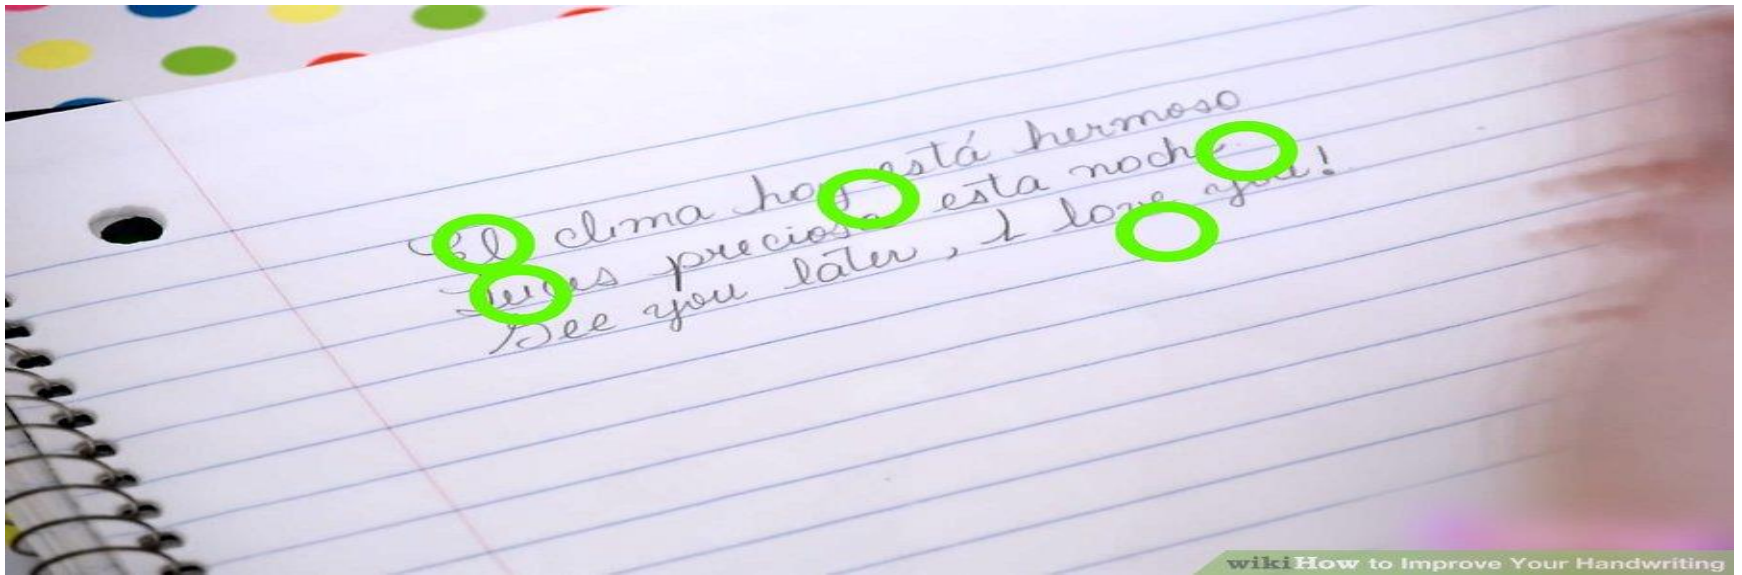 El clima hoy está hermoso
luces preciosa esta noche
See you later, I love you!
wikiHow to Improve Your Handwriting